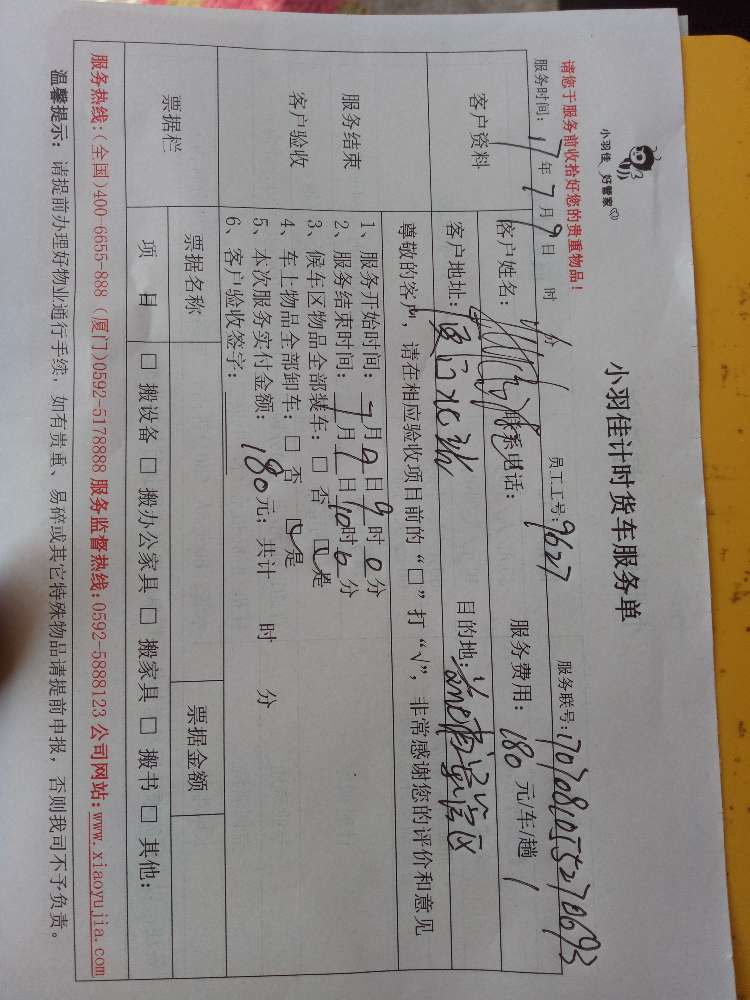 小羽佳 好管家
小羽佳计时货车服务单
请您于服务前收拾好您的贵重物品！
员工工号：9627 服务联号：1707081055270693
服务时间：17年7月9日 时 分
客户资料
客户姓名： 联系电话： 服务费用：180元/车/趟 1
客户地址：厦门北站 目的地：
尊敬的客户，请在相应验收项目前的“□”打“√”，非常感谢您的评价和意见
服务结束
客户验收
1、服务开始时间：7月9日9时0分
2、服务结束时间：7月9日10时6分
3、候车区物品全部装车：□ 否 ☑是
4、车上物品全部卸车：□ 否 ☑是
5、本次服务实付金额：180元；共计 时 分
6、客户验收签字：
票据栏
票据名称 票据金额
项 目 □ 搬设备 □ 搬办公家具 □ 搬家具 □ 搬书 □ 其他：
服务热线：(全国)400-6655-888 (厦门)0592-5178888 服务监督热线：0592-5888123 公司网站：www.xiaoyujia.com
温馨提示：请提前办理好物业通行手续，如有贵重、易碎或其它特殊物品请提前申报，否则我司不予负责。